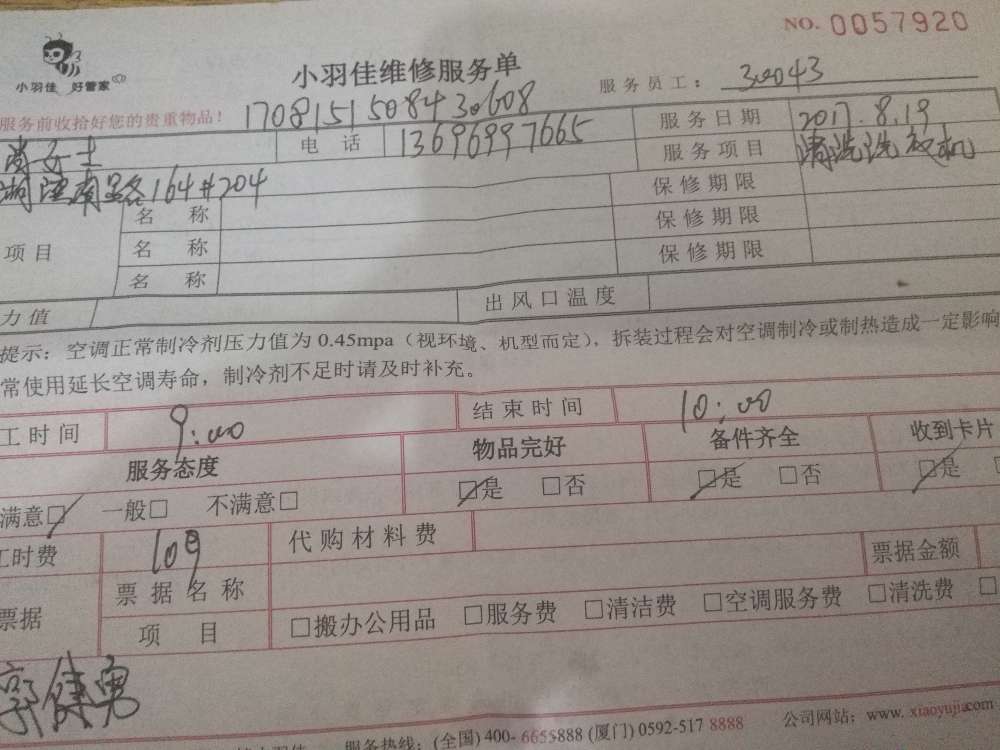 NO. 0057920
小羽佳 好管家
小羽佳维修服务单
服务员工： 30043
服务前收拾好您的贵重物品！ 170815150843.0608
女士 电 话 13696997665 服务日期 2017.8.19
服务项目 清洗洗衣机
湖 南 164#204
保修期限
项目 名 称 保修期限
名 称 保修期限
名 称
力值 出风口温度
提示：空调正常制冷剂压力值为 0.45mpa（视环境、机型而定），拆装过程会对空调制冷或制热造成一定影响
常使用延长空调寿命，制冷剂不足时请及时补充。
工时间 9:00 结束时间 10:00
服务态度 物品完好 备件齐全 收到卡片
满意☑ 一般□ 不满意□ ☑是 □否 ☑是 □否 ☑是
工时费 109 代购材料费
票据 票据名称 票据金额
项 目 □搬办公用品 □服务费 □清洁费 □空调服务费 □清洗费 □
郭健勇
服务热线：(全国) 400- 6655888 (厦门) 0592-517 8888 公司网站：www. xiaoyujia.com